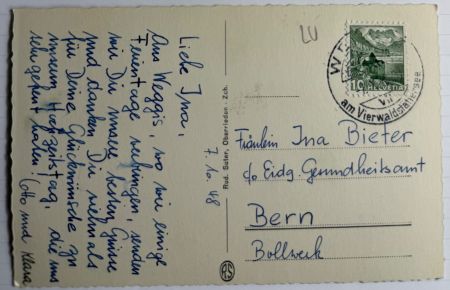 Liebe Ina,
Aus Weggis, wo wir einige
Ferientage verbringen, senden
wir Dir unsere besten Grüsse
und danken Dir vielmals
für Deine Glückwünsche zu
unserem Hochzeitstag, die uns
sehr gefreut haben!
Otto und Klara
7.10.48
Rud. Suter, Oberrieden - Zch.
RS
LU
10
am Vierwaldstättersee
Fräulein Ina Bieter
c/o Eidg. Gesundheitsamt
Bern
Bollwerk